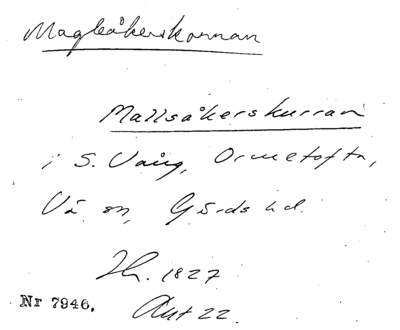 Magleåkerskornan
Mallsåkerskurran
i S. Vång, Ormetofta,
Vå sn, Gärds hd.
Lh. 1827
Akt 22.
Nr 7946.